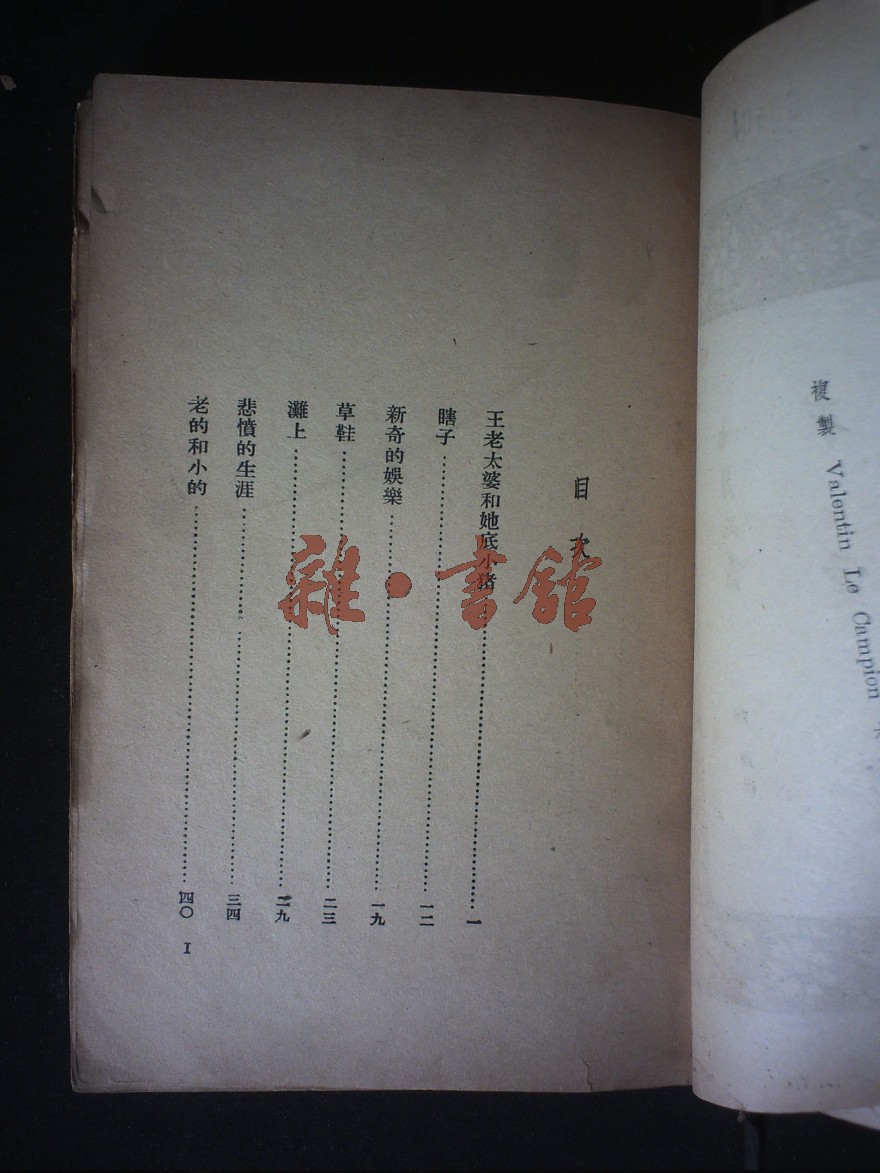 目次
王老太婆和她底小猪……一
瞎子……一二
新奇的娛樂……一九
草鞋……二三
灘上……二九
悲憤的生涯……三四
老的和小的……四〇
I
雜·書館
複製 Valentin Le Campion